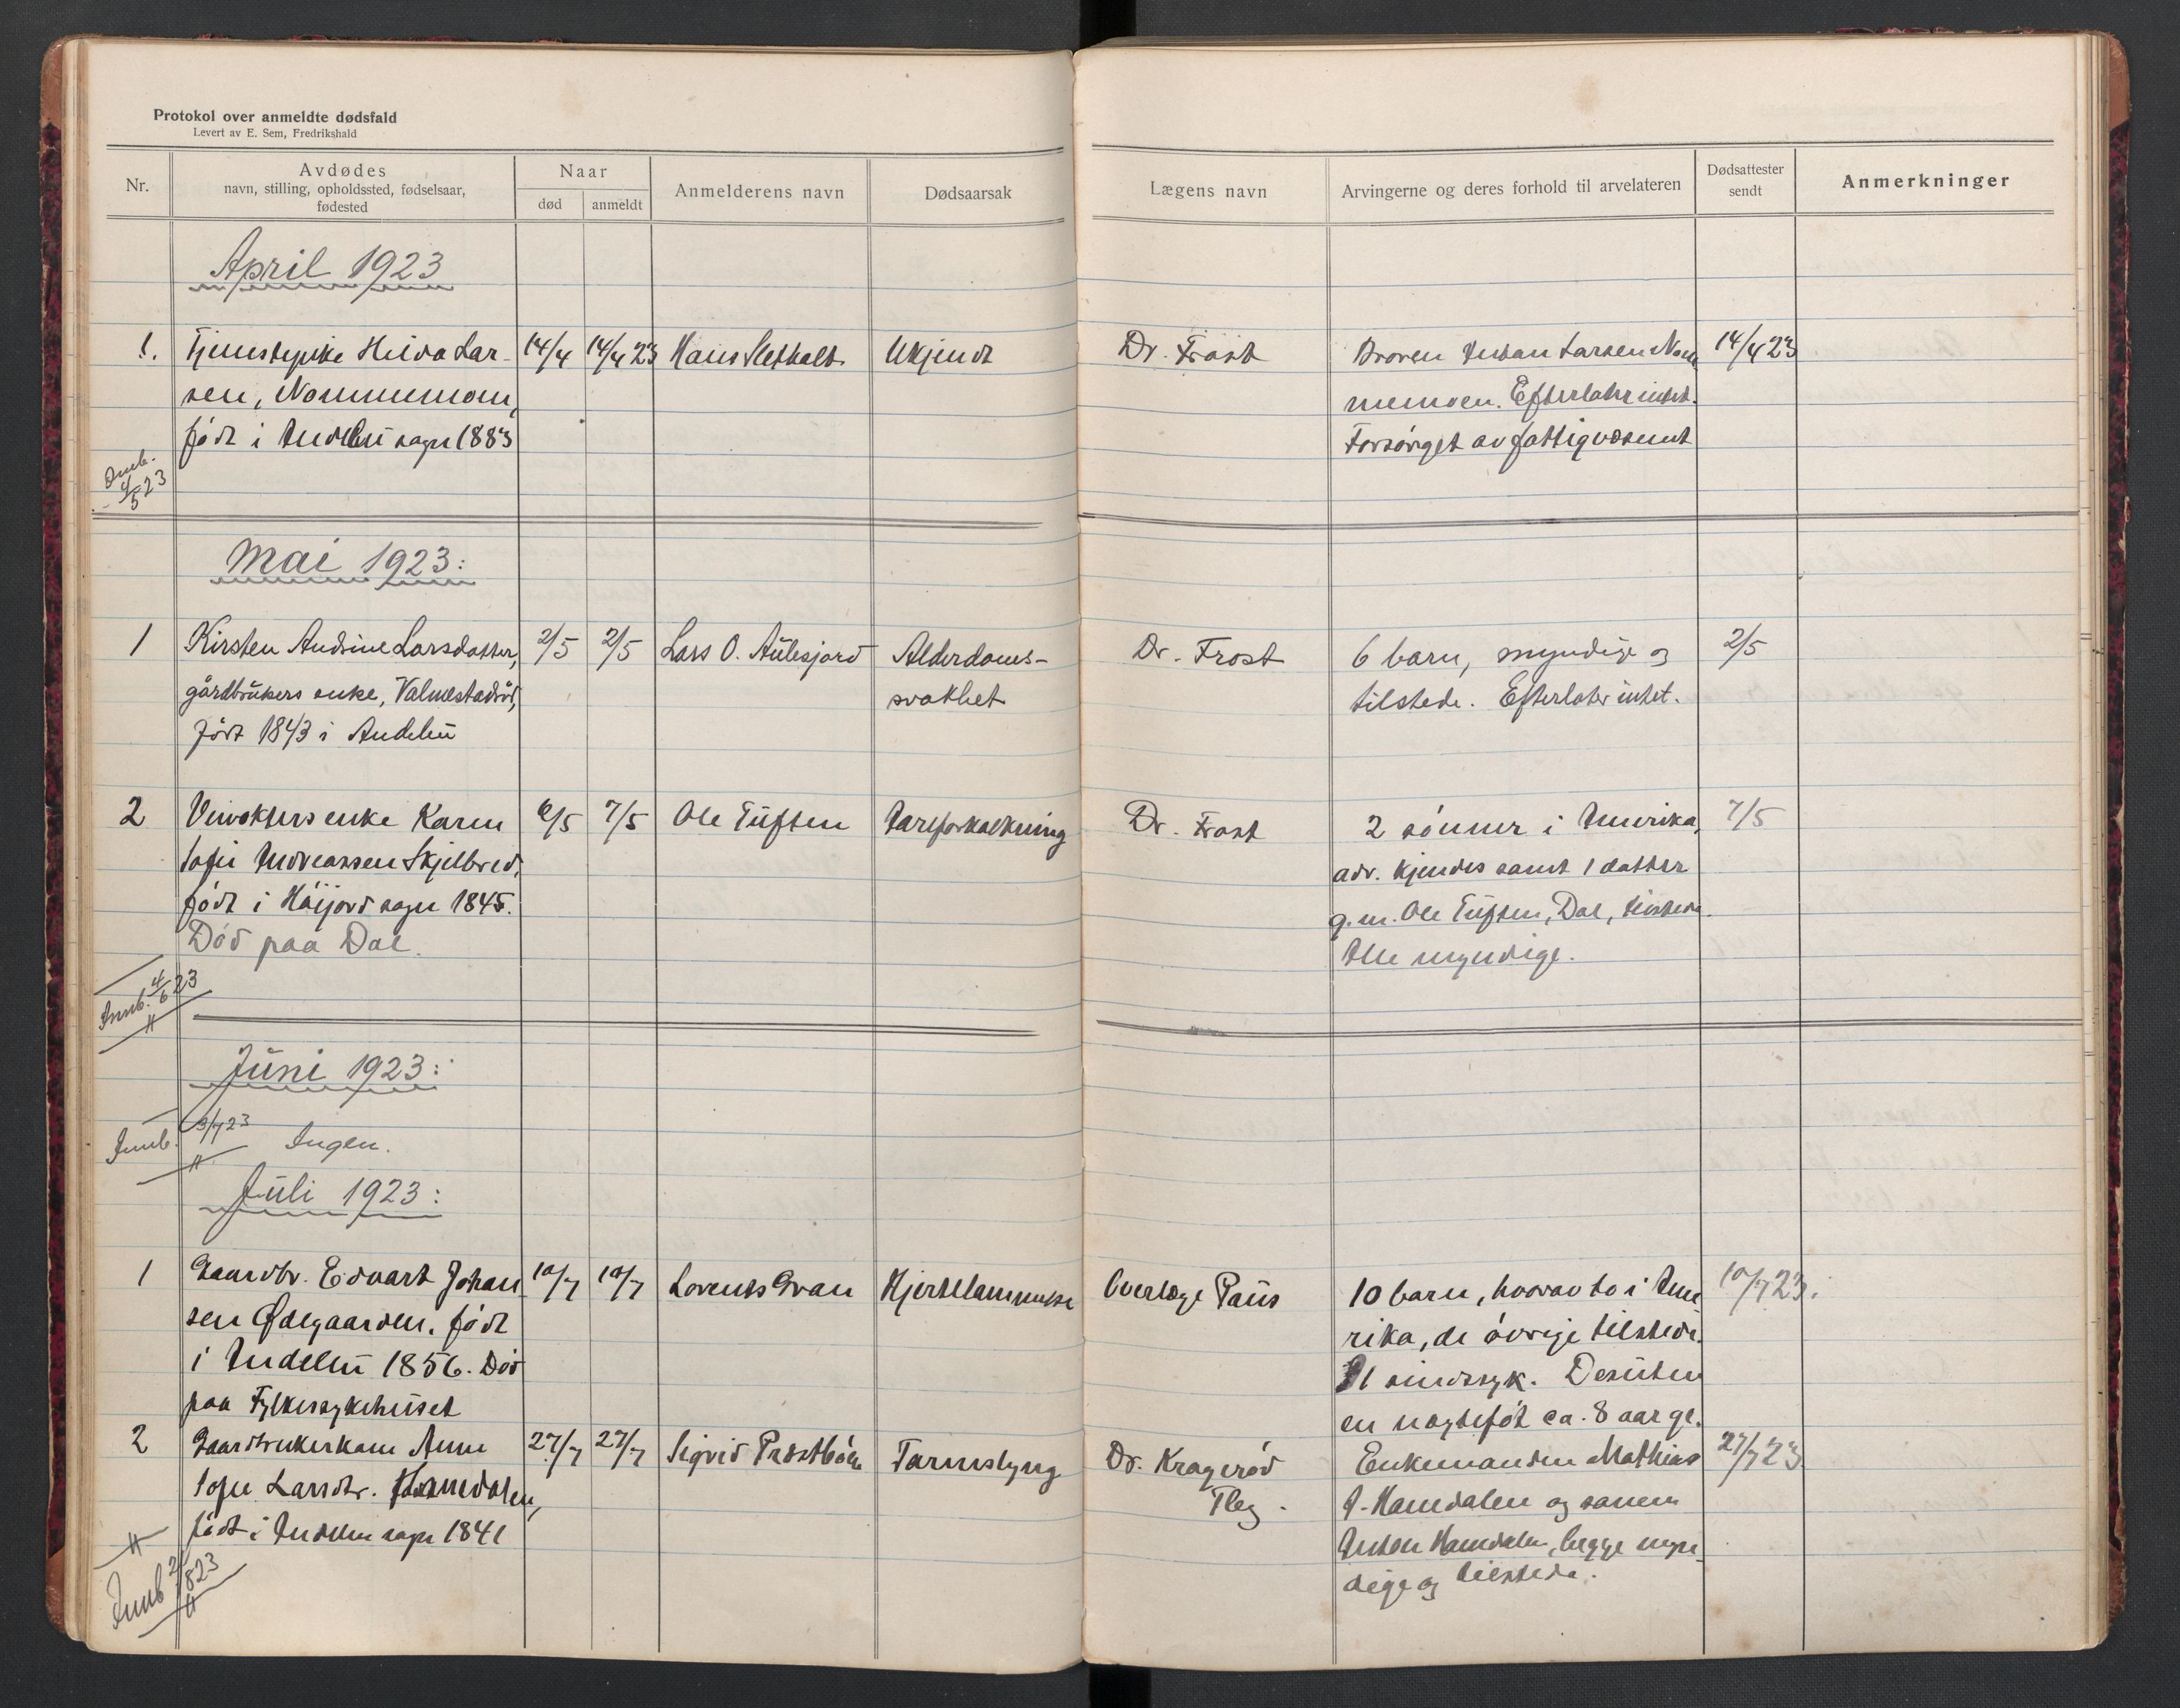 Protokol over anmeldte dødsfald
Levert av E. Sem, Fredrikshald
Nr.
Avdødes
navn, stilling, opholdssted, fødselsaar,
fødested
Naar
død
anmeldt
Anmelderens navn
Dødsaarsak
Lægens navn
Arvingerne og deres forhold til arvelateren
Dødsattester
sendt
Anmerkninger
April 1923
1. Tjenestepike Hilda Lar-
sen, Nommemoen,
født i Andebu sogn 1883
14/4 14/4 23 Hans Slettholt Ukjendt
Dr. Frost
Broren Anton Larsen Nom
memoen. Efterlater intet.
Forsörget av fattigvæsenet
14/4 23
Innb.
4/5 23
Mai 1923:
1 Kirsten Andrine Larsdatter,
gårdbrukers enke, Valmestadrød,
født 1843 i Andebu
2/5 2/5 Lars O. Aulesjord Alderdoms-
svakhet
Dr. Frost
6 barn, myndige og
tilstede. Efterlater intet.
2/5
2 Avvokters enke Karen
Sofie Andreassen Skjelbred,
født i Höijord sogn 1845.
Död paa Dal.
6/5 7/5 Ole Tuften Aareforkalkning
Dr. Frost
2 sönner i Amerika,
adr. kjendes samt 1 datter
g.m. Ole Tuften, Dal, tilstede.
Alle myndige.
7/5
Innb. 4/6 23
H
Juni 1923:
Innb. 3/7 23
H
Ingen.
Juli 1923:
1 Gaardbr. Edvart Johan
sen Ødegaarden, født
i Andebu 1856. Död
paa Fylkessykehuset
10/7 10/7 Lorents Gran Hjertelammelse
Overlæge Paus
10 barn, hvorav to i Ame
rika, de övrige tilstede.
1 sindssyk. Desuten
en uegtefödt ca. 8 aar gl.
10/7 23.
2 Gaardbrukerkone Anne
Sofie Larsdtr. Hamdalen,
født i Andebu sogn 1841
27/7 27/7 Sigvid Præstbøen Tarmslyng
Dr. Kragerød
Tbg.
Enkemanden Mathias
A. Hamdalen og sønnen
Anton Hamdalen, begge myn
dige og tilstede.
27/7 23
H
Innb 2/8 23
H